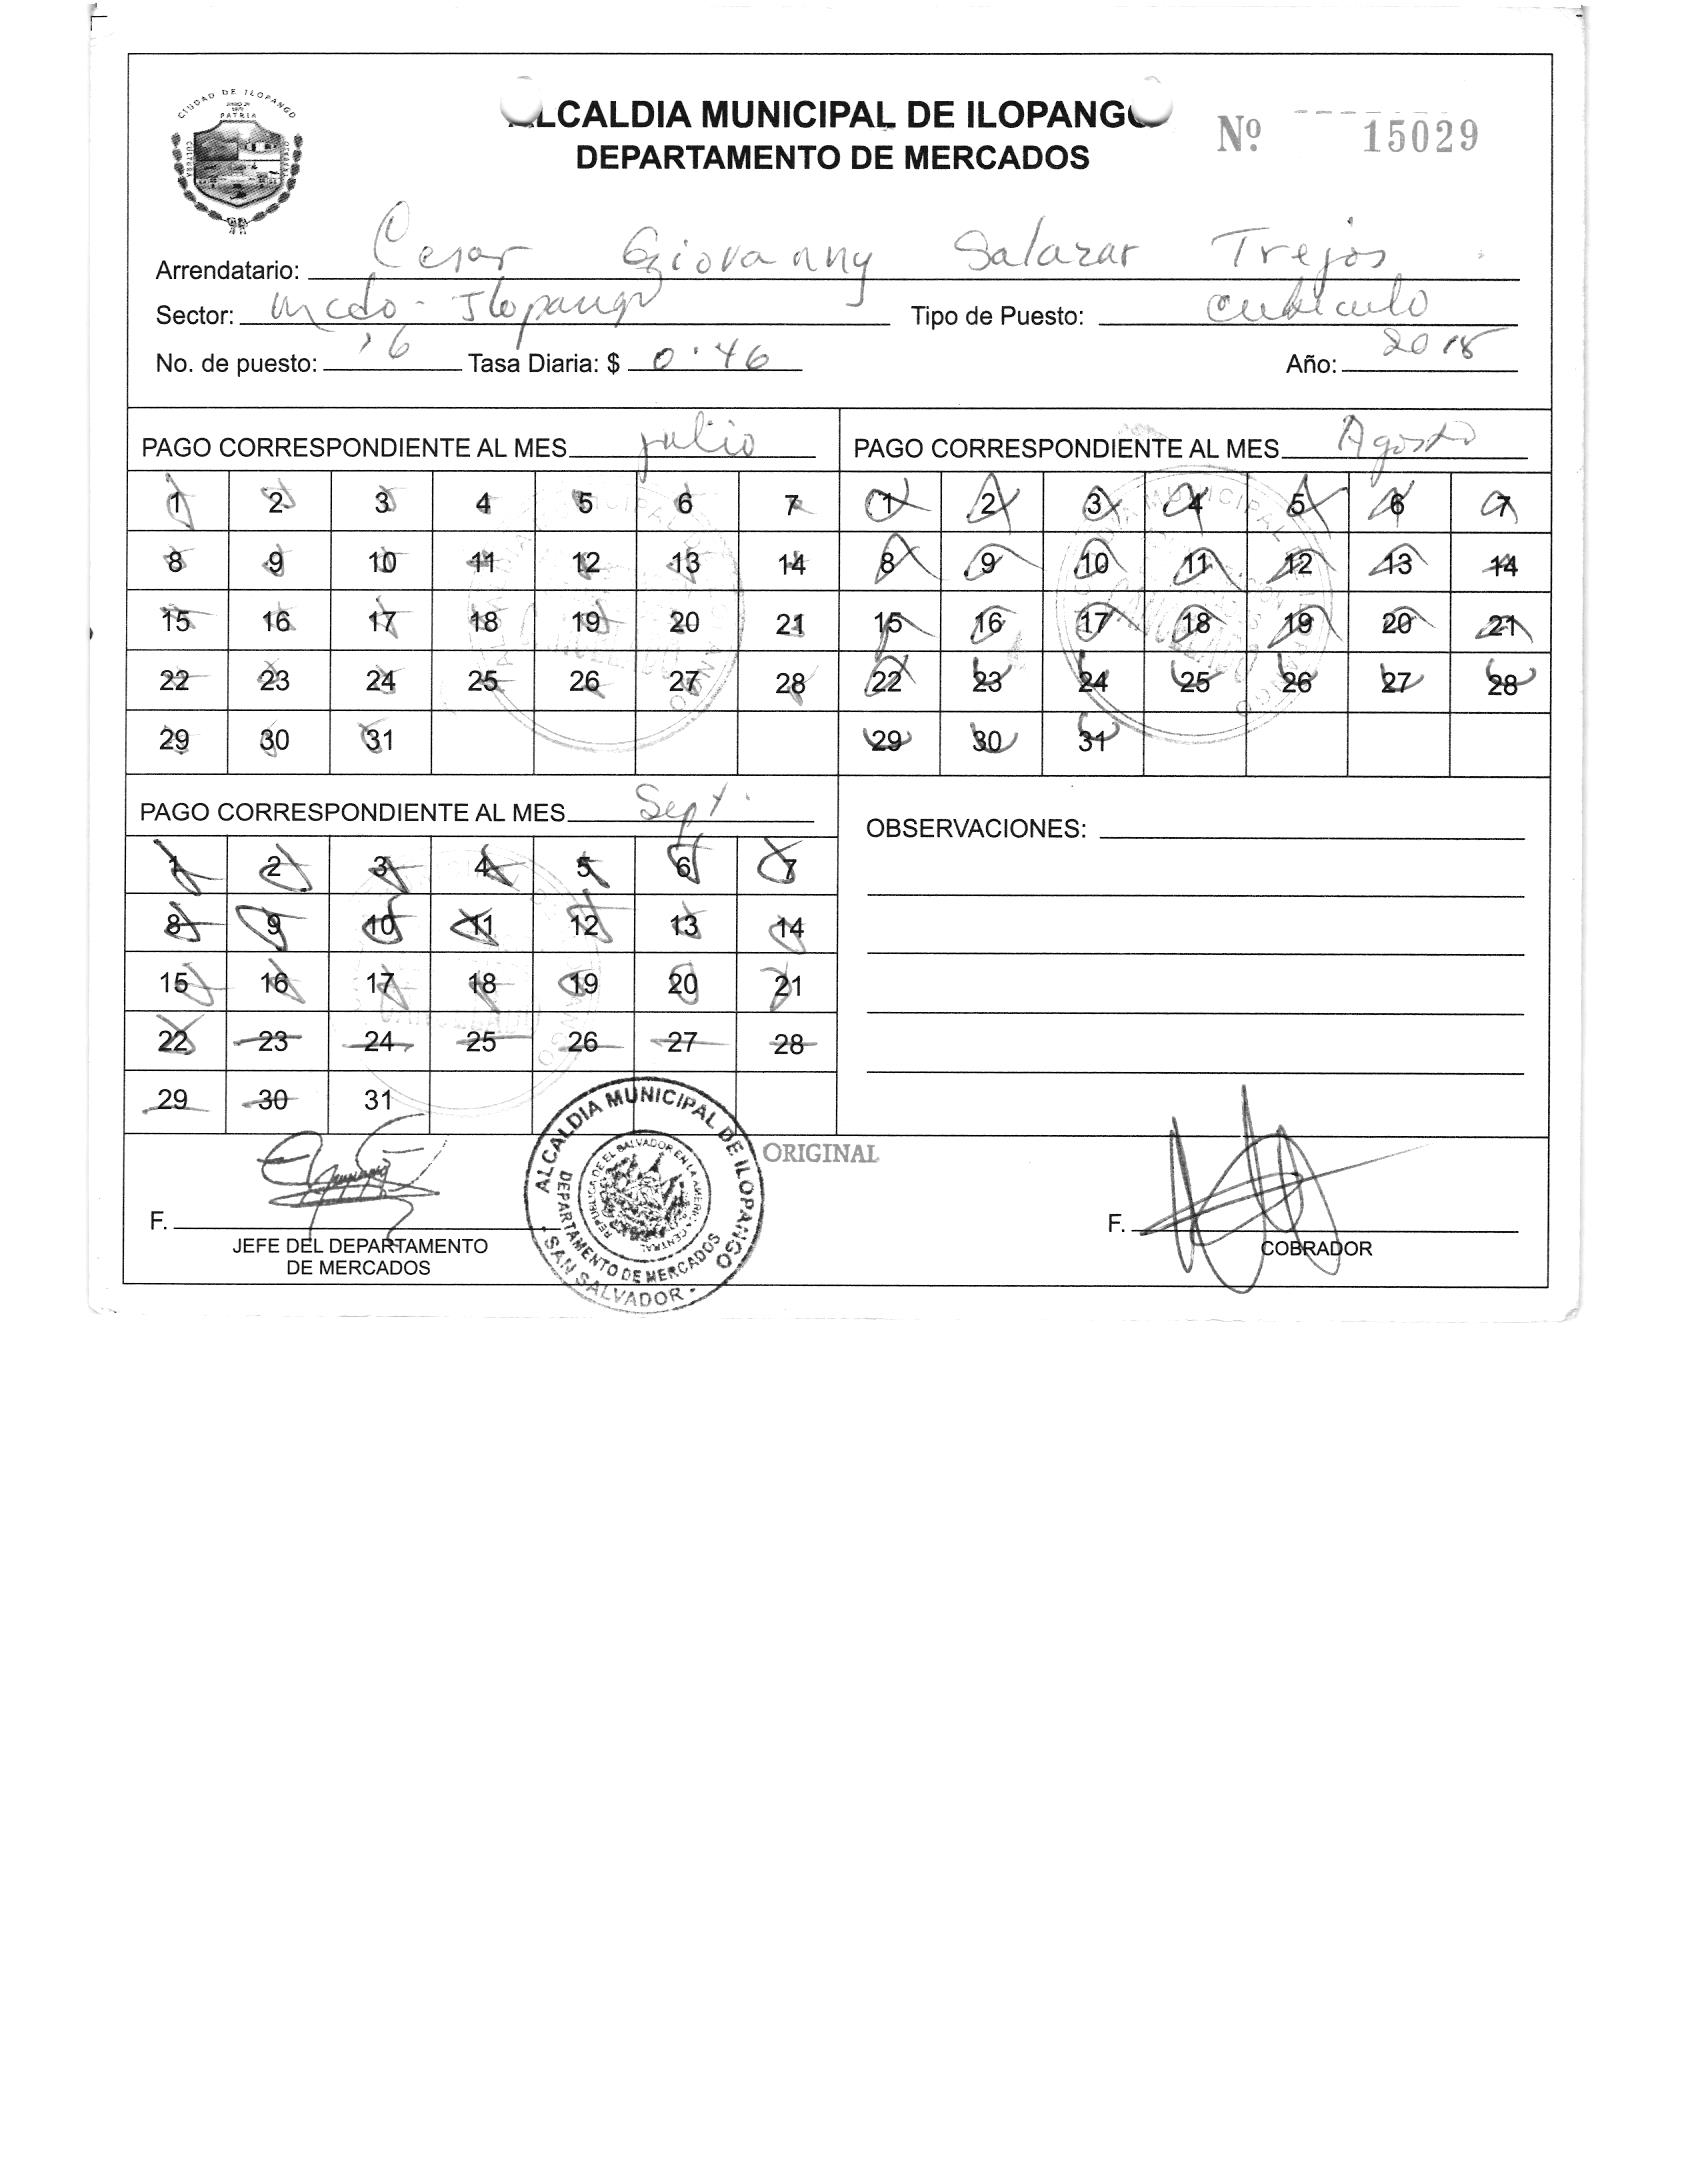 CIUDAD DE ILOPANGO
PATRIA
CULTURA
ALCALDIA MUNICIPAL DE ILOPANGO
DEPARTAMENTO DE MERCADOS
Nº 15029
Arrendatario: Cesar Giovanny Salazar Trejos
Sector: Mcdo - Ilopango Tipo de Puesto: Cubiculo
No. de puesto: 16 Tasa Diaria: $ 0.46 Año: 2018
PAGO CORRESPONDIENTE AL MES julio
1 2 3 4 5 6 7
8 9 10 11 12 13 14
15 16 17 18 19 20 21
22 23 24 25 26 27 28
29 30 31
PAGO CORRESPONDIENTE AL MES Agosto
1 2 3 4 5 6 7
8 9 10 11 12 13 14
15 16 17 18 19 20 21
22 23 24 25 26 27 28
29 30 31
PAGO CORRESPONDIENTE AL MES Sept.
1 2 3 4 5 6 7
8 9 10 11 12 13 14
15 16 17 18 19 20 21
22 23 24 25 26 27 28
29 30 31
OBSERVACIONES:
ORIGINAL
F.
JEFE DEL DEPARTAMENTO
DE MERCADOS
ALCALDIA MUNICIPAL DE ILOPANGO
DEPARTAMENTO DE MERCADOS
REPUBLICA DE EL SALVADOR EN LA AMERICA CENTRAL
- SAN SALVADOR -
F.
COBRADOR